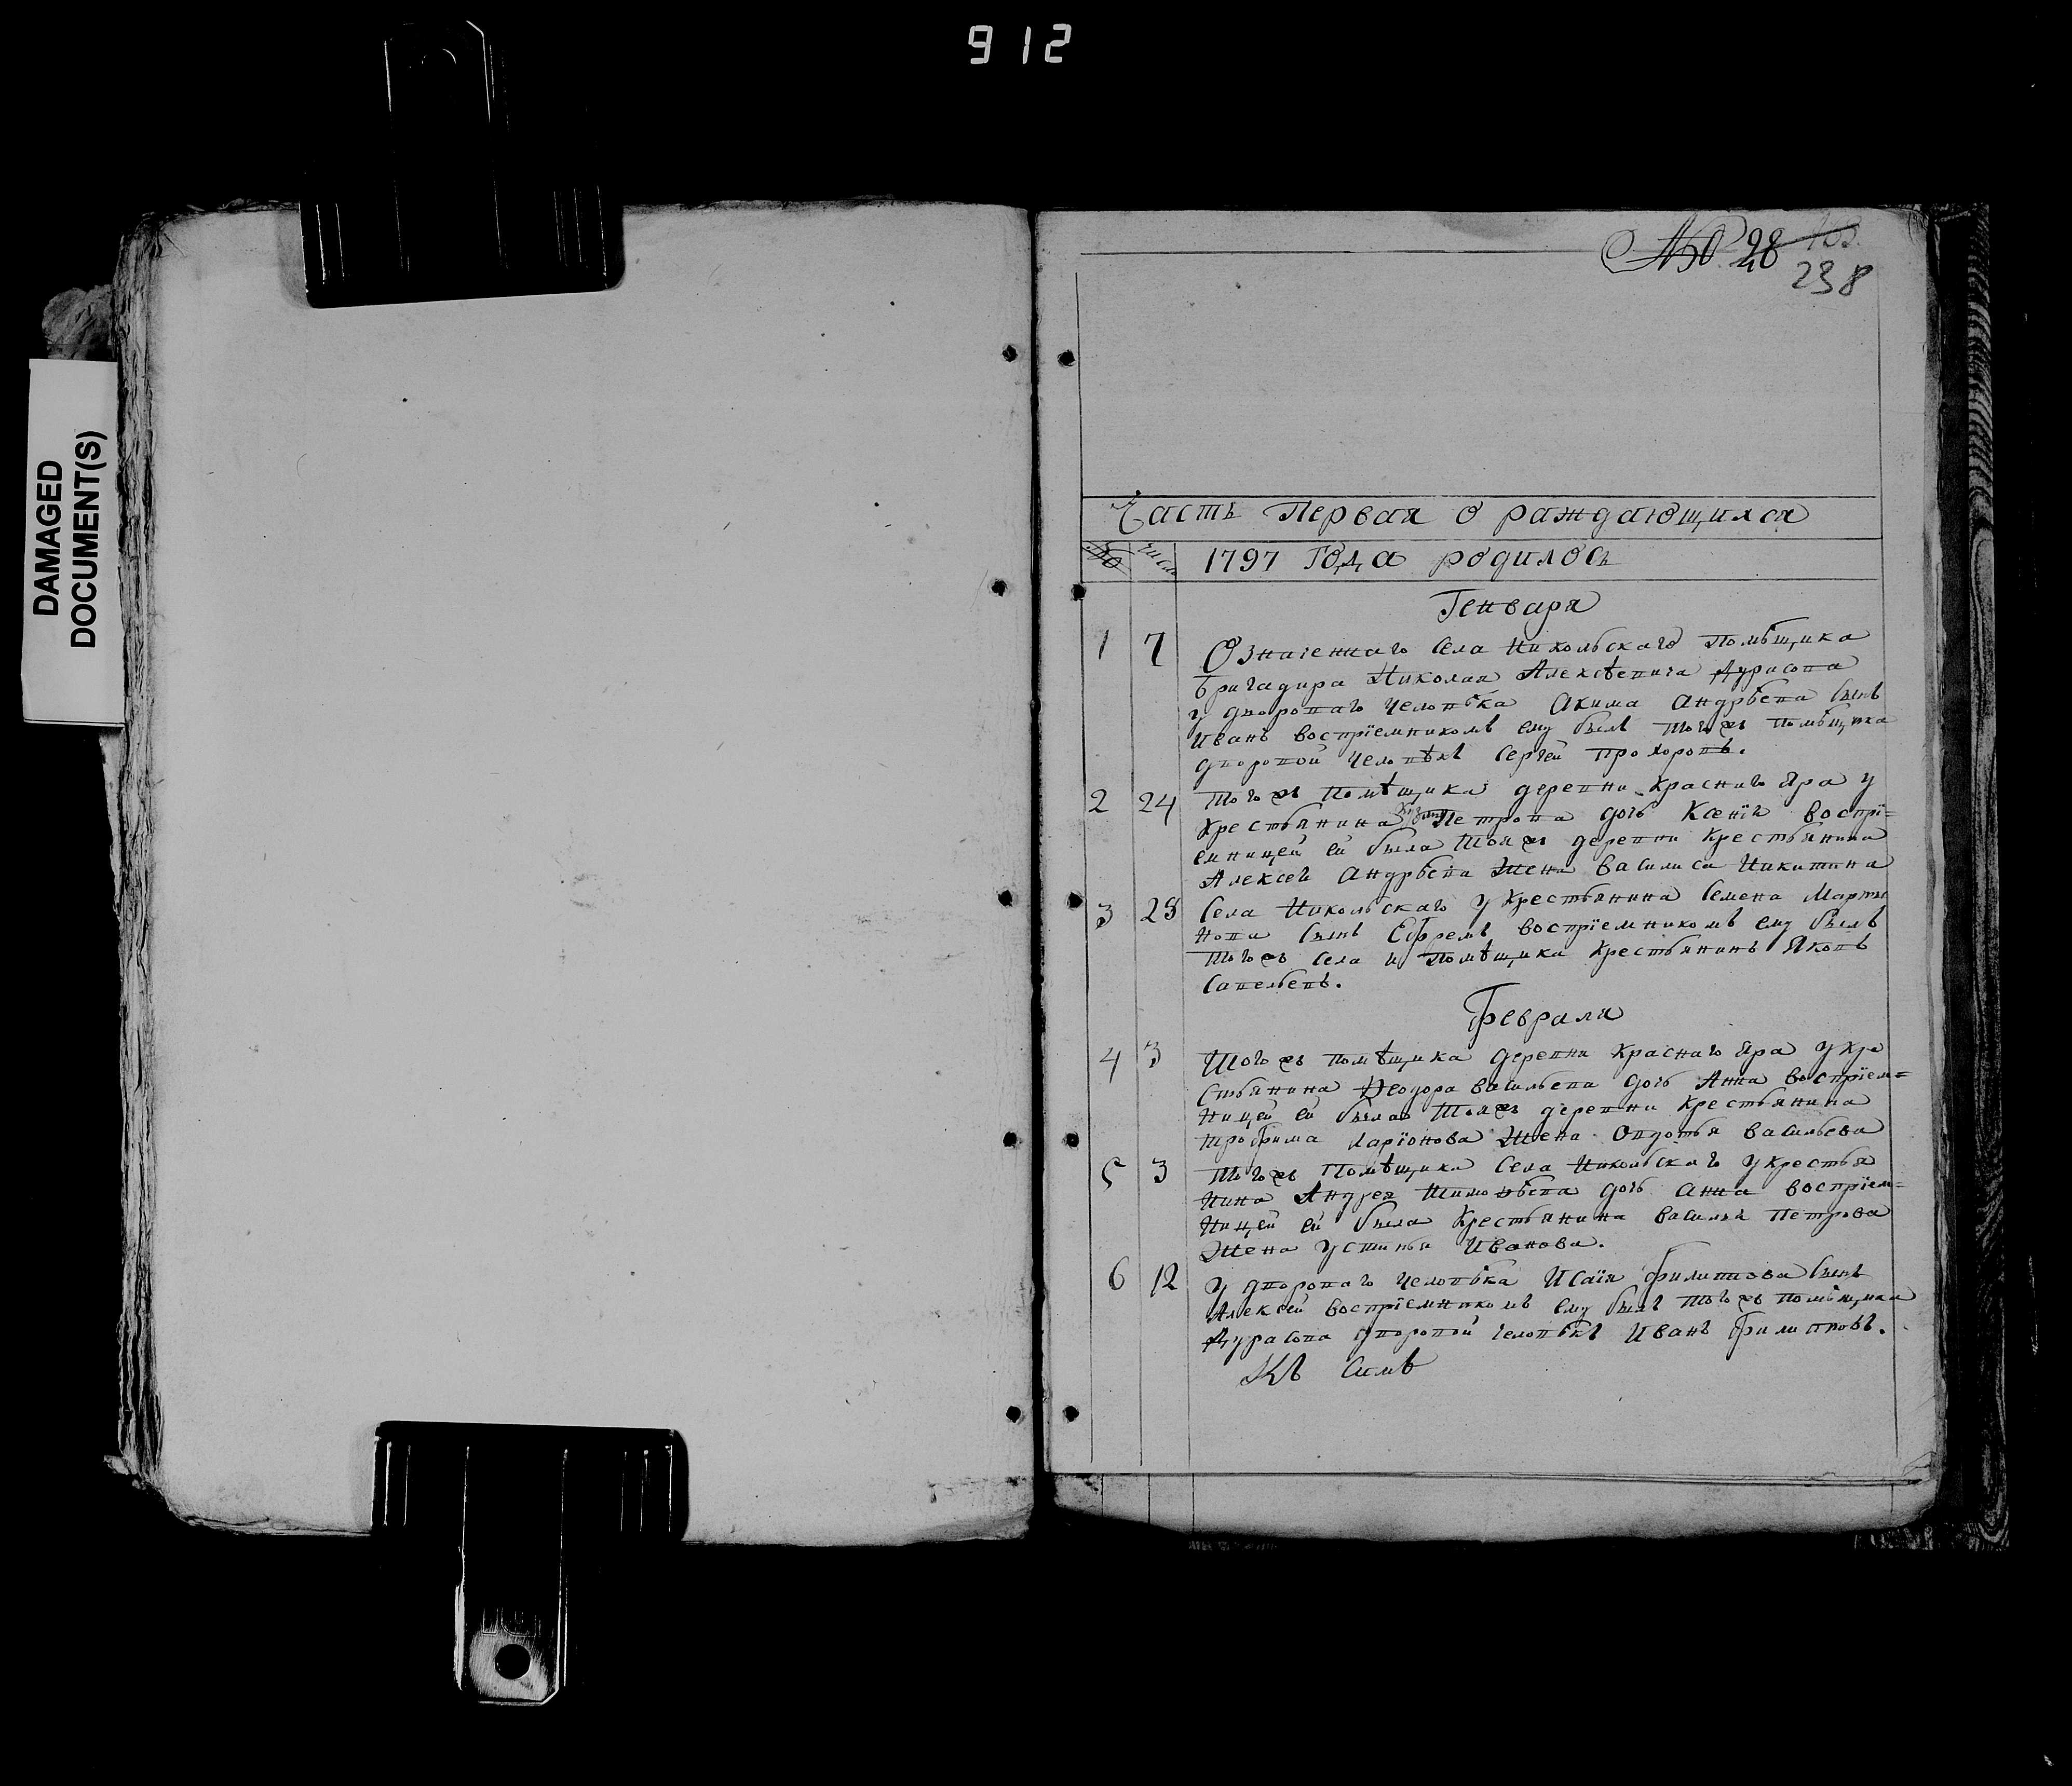 912
DAMAGED
DOCUMENT(S)
№ 28
238
Часть Первая о раждающихся
№ числ 1797 Года родилось
Генваря
1 7 Означеннаго села Никольскаго помѣщика
бригадира Николая Алексѣевича Дурасова
у двороваго человѣка Акима Андрѣева сынъ
Иванъ воспрїемникомъ ему былъ тогожъ помѣщика
дворовой человѣкъ Сергей Прохоровъ.
2 24 Тогожъ помѣщика деревни Краснаго Яра у
крестьянина Петрова дочь Ксенїя воспрї=
емницей ей была тояжъ деревни крестьянина
Алексея Андрѣева жена Василиса Никитина
3 28 Села Никольскаго у крестьянина Семена Марты
нова сынъ Ефремъ воспрїемникомъ ему былъ
тогожъ села и помѣщика крестьянинъ Яковъ
Савельевъ.
Февраля
4 3 Тогожъ помѣщика деревни Краснаго Яра у кре
стьянина Ѳеодора Васильева дочь Анна воспрїем=
ницей ей была тояжъ деревни крестьянина
Трофима Ларїонова жена Овдотья Васильева
5 3 Тогожъ помѣщика села Никольскаго у крестья
нина Андрея Тимофѣева дочь Анна воспрїем=
ницей ей была крестьянина Василья Петрова
жена Устинья Иванова.
6 12 У двороваго человѣка Исаїя Филиппова сынъ
Алексѣй воспрїемникомъ ему былъ тогожъ помѣщика
Дурасова дворовой человѣкъ Иванъ Филипповъ.
Къ симъ